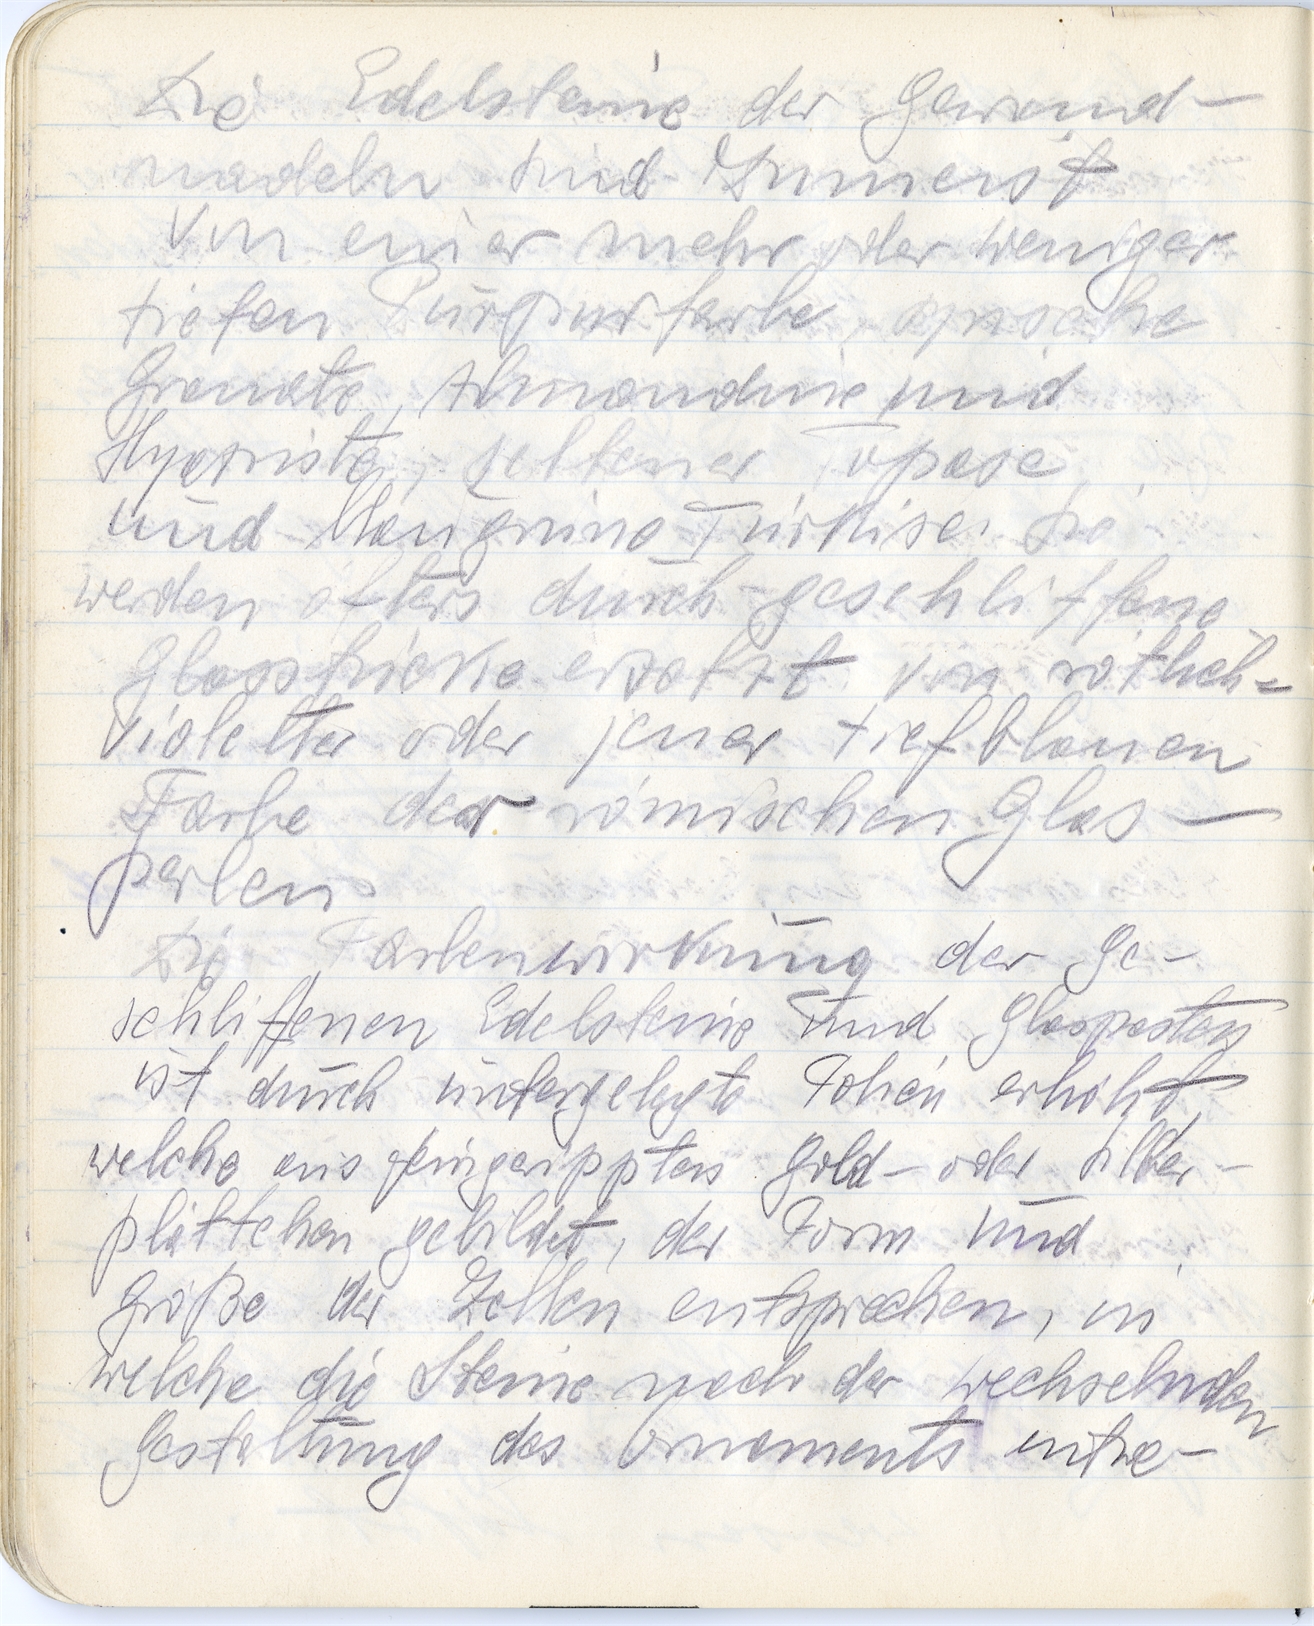 Die Edelsteine der Gewand-
nadeln sind zumeist
von einer mehr oder weniger
tiefen Purpurfarbe, syrische
Granate, Almandine und
Hyazinste, seltener Topase
und blaugrüne Türkise. Sie
werden öfters durch geschliffene
Glasstücke ersetzt von rötlich-
violetter oder jener tiefblauen
Farbe der römischen Glas-
perlen.
Die Farbenwirkung der ge-
schliffenen Edelsteine und Glaspasten
ist durch untergelegte Folien erhöht,
welche aus feingerippten Gold- oder Silber-
plättchen gebildet, der Form und
Größe der Zellen entsprechen, in
welche die Steine nach der wechselnden
Gestaltung des Ornaments entwe-